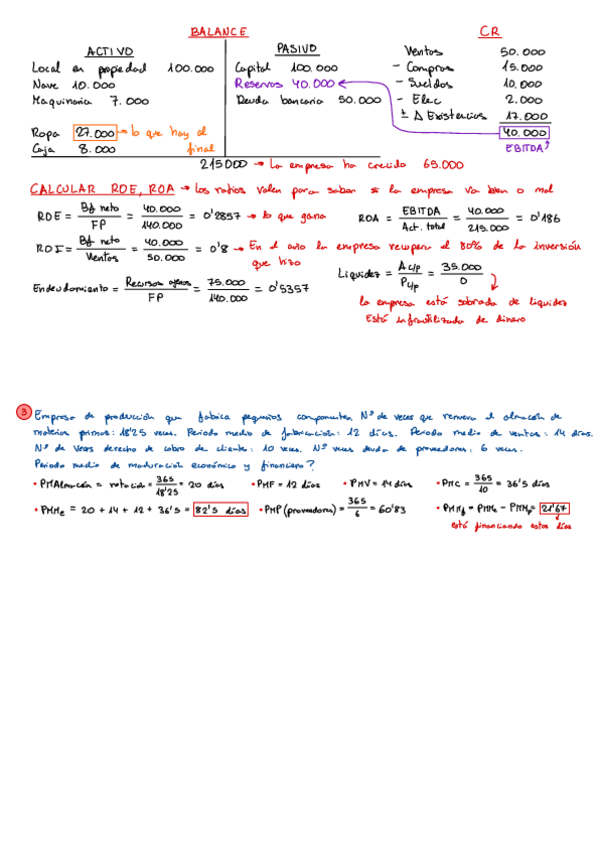 BALANCE
CR
ACTIVO
PASIVO
Local en propiedad 100.000
Nave 10.000
Maquinaria 7.000
Ropa 27.000 → lo que hay al final
Caja 8.000
Capital 100.000
Reservas 40.000
Deuda bancaria 50.000
Ventas 50.000
- Compras 15.000
- Sueldos 10.000
- Elec 2.000
± Δ Existencias 17.000
40.000
EBITDA
215000 → La empresa ha crecido 65.000
CALCULAR ROE, ROA → Los ratios valen para saber si la empresa va bien o mal
ROE = Bº neto / FP = 40.000 / 140.000 = 0'2857 → lo que gana
ROA = EBITDA / Act. total = 40.000 / 215.000 = 0'186
ROI = Bº neto / Ventas = 40.000 / 50.000 = 0'8 → En el año la empresa recupera el 80% de la inversión que hizo
Liquidez = A c/p / P c/p = 35.000 / 0
la empresa está sobrada de liquidez
Está infrautilizada de dinero
Endeudamiento = Recursos ajenos / FP = 75.000 / 140.000 = 0'5357
3 Empresa de producción que fabrica pequeños componentes. Nº de veces que renueva el almacén de
materias primas: 18'25 veces. Periodo medio de fabricación: 12 días. Periodo medio de ventas: 14 días.
Nº de veces derecho de cobro de cliente: 10 veces. Nº veces deuda de proveedores: 6 veces.
Periodo medio de maduración económico y financiero?
• PMAlmacén = rotación = 365 / 18'25 = 20 días • PMF = 12 días • PMV = 14 días • PMC = 365 / 10 = 36'5 días
• PMMe = 20 + 14 + 12 + 36'5 = 82'5 días • PMP (proveedores) = 365 / 6 = 60'83 • PMMf = PMMe - PMMp = 21'67
está financiando estos días